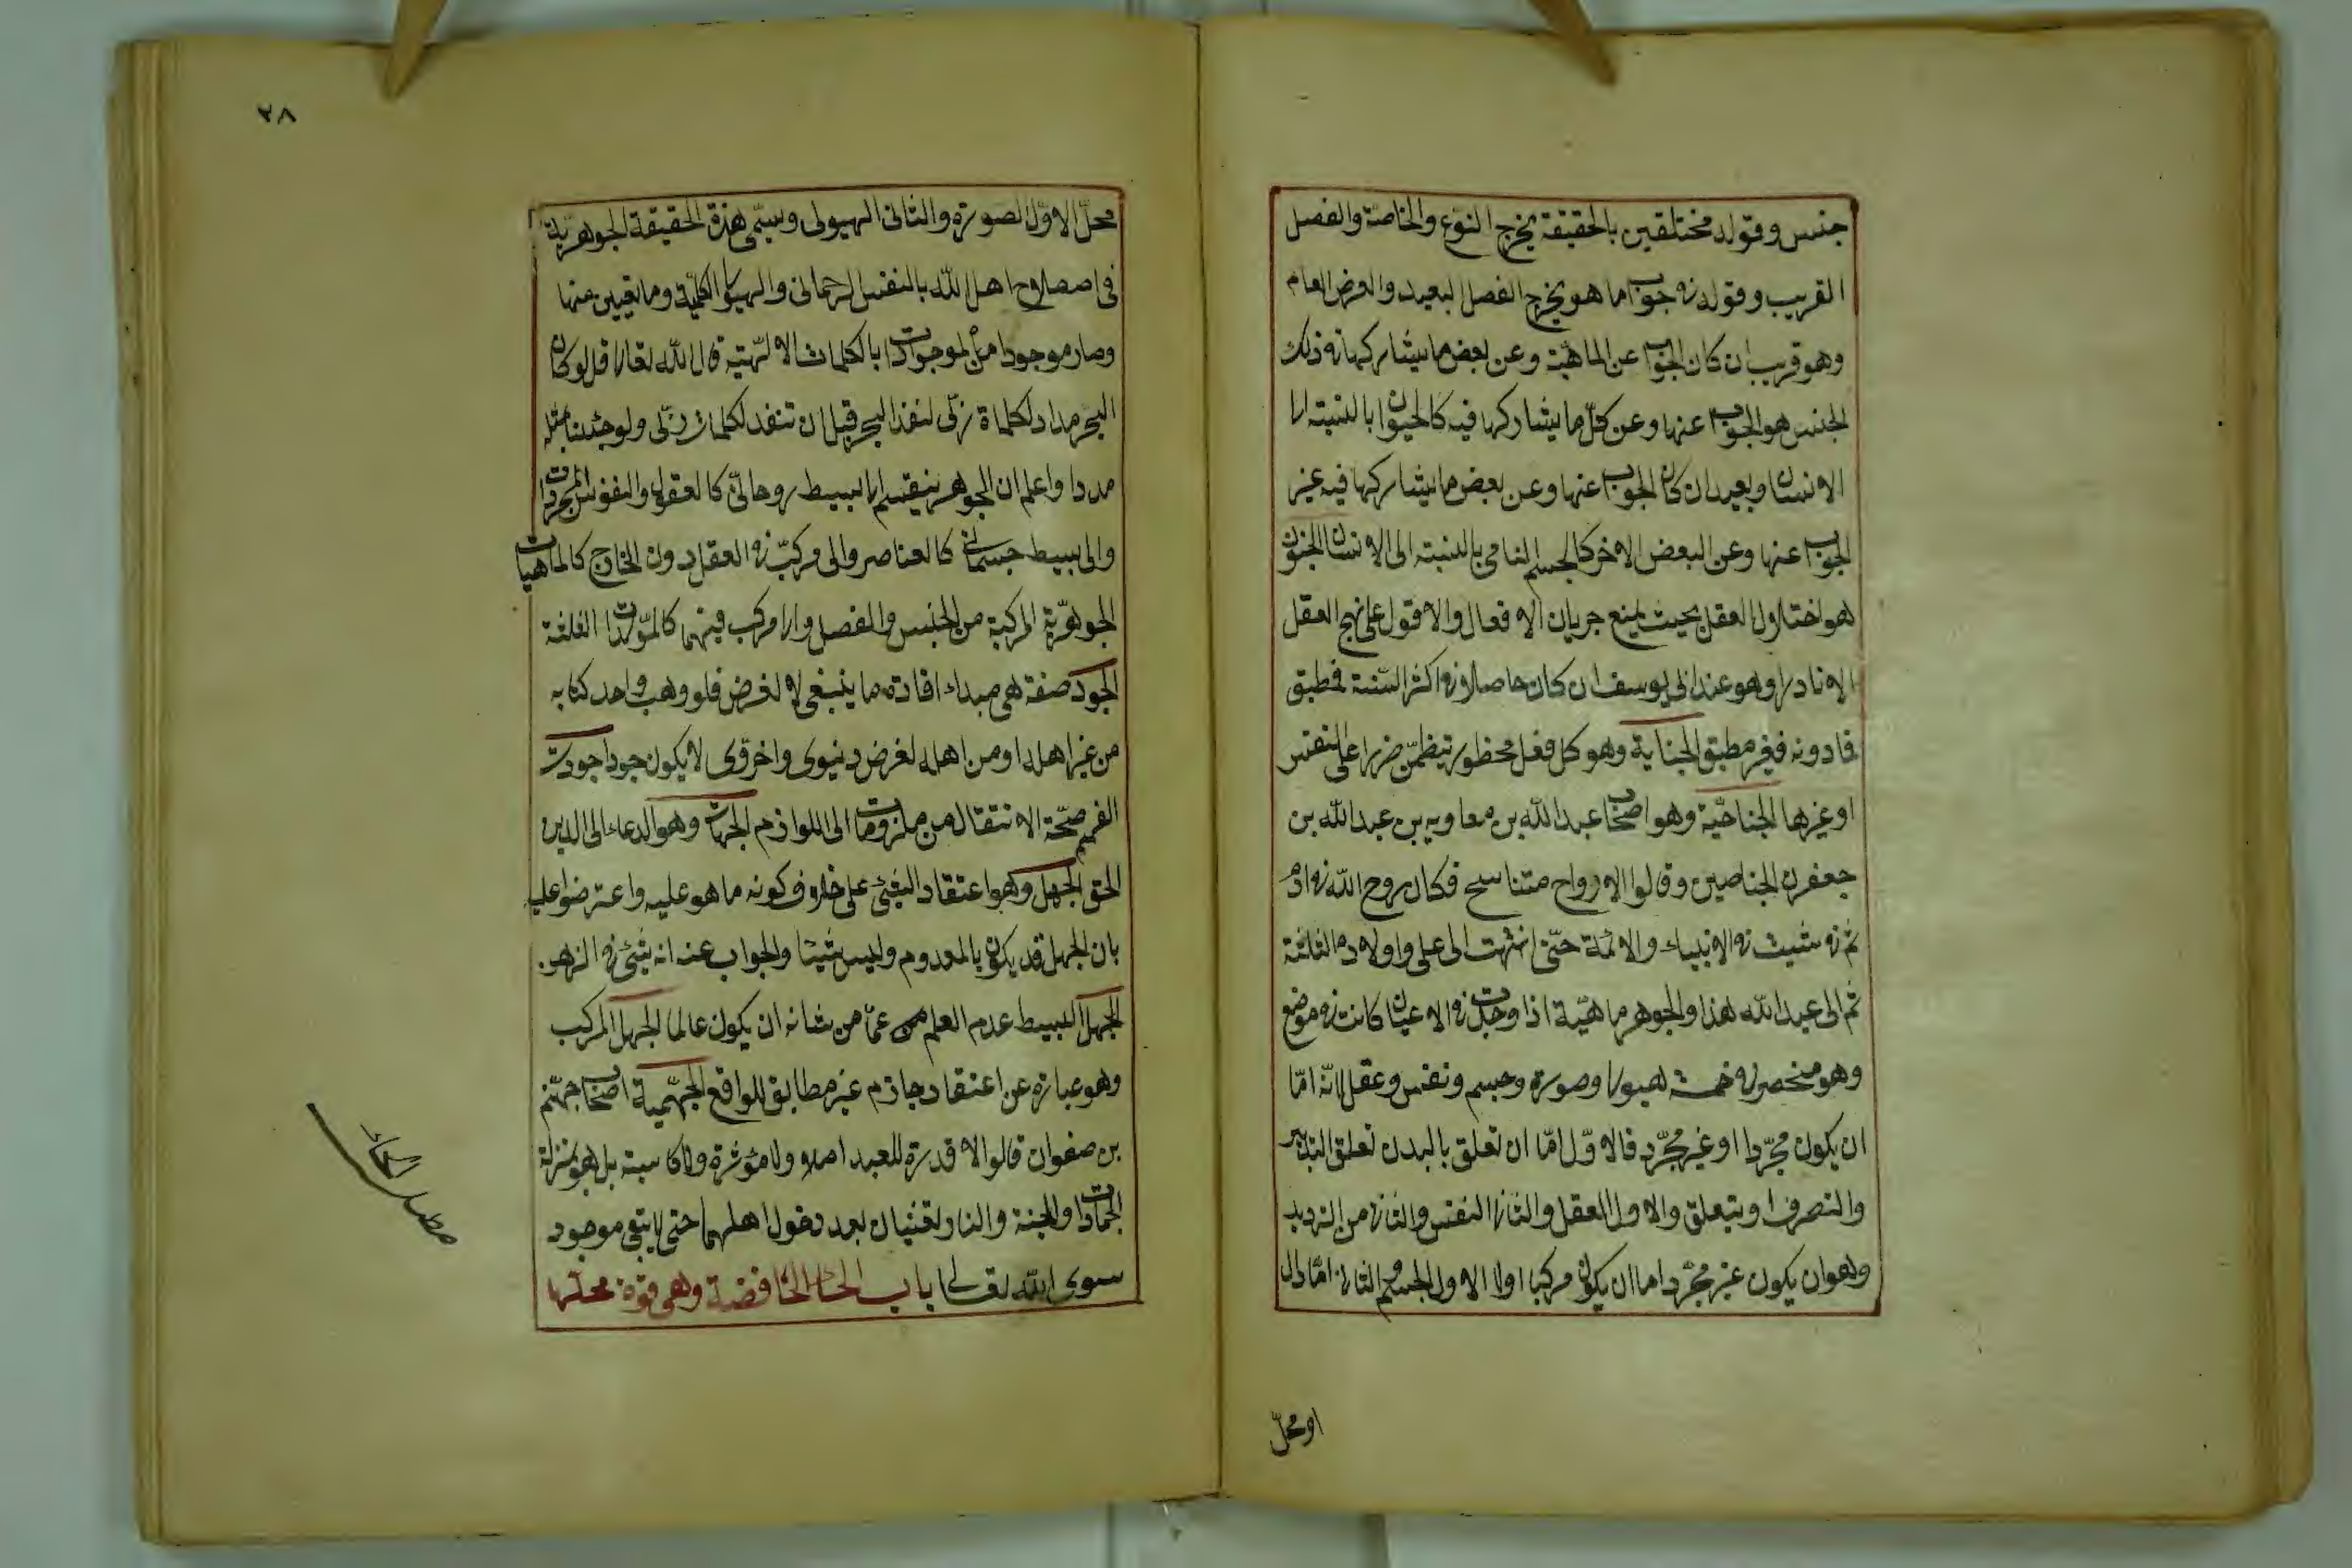 جنس وقوله مختلقين بالحقيقة يخرج النوع والخاصة والفصل
القريب وقوله في جواب ما هو يخرج الفصل البعيد والعرض العام
وهو قريب ان كان الجواب عن الماهية وعن بعض ما يشاركها في ذلك
الجنس هو الجواب عنها وعن كل ما يشاركها فيه كالحيوان بالنسبة الى
الانسان وبعيد ان كان الجواب عنها وعن بعض ما يشاركها فيه غير
الجواب عنها وعن البعض الاخر كالجسم النامى بالنسبة الى الانسان الجنون
هو اختلاول العقل بحيث يمنع جريان الافعال والاقول على نهج العقل
الا نادرا وهو عند ابى يوسف ان كان حاصلا في اكثر السنة فمطبق
فما دونه فغير مطبق الجناية وهو كل فعل محظور يتظمن ضررا على النفس
او غيرها الجناحية وهو اصحاب عبد الله بن معاويه بن عبد الله بن
جعفر الجناحين وقالوا الارواح متناسخ فكان روح الله في ادم
ثم في شيث في الانبياء والائمة حتى انتهت الى على واولاده الثلثة
ثم الى عبد الله هذا والجوهر ماهية اذا وجدت في الاعيان كانت في موضع
وهو منحصر في خمسة هيولى وصورة وجسم ونفس وعقل لانه اما
ان يكون مجردا او غير مجرد فالاول اما ان تعلق بالبدن تعلق التدبير
والتصرف او يتعلق والاول العقل والثانى النفس والثانى من الترديد
وهو ان يكون غير مجرد اما ان يكون مركبا اولا الاول الجسم والثانى اما حال
او محل
٢٨
محل الاول الصورة والثانى الهيولى وسيمى هذه الحقيقة الجوهرية
فى اصصلاح اهل الله بالنفس الرحمانى والهيولى الكلية وما يتعين منها
وصار موجودا من الموجودات بالكلمات الالهية قال الله تعالى قل لو كان
البحر مدادا لكلماة ربى لنفذ البحر قبل ان تنفد كلمات ربى ولو جئنا بمثله
مددا واعلم ان الجوهر ينقسم الى بسيط روحانى كالعقول والنفوس المجردات
والى بسيط جسمانى كالعناصر والى مركب في العقل دون الخارج كالماهيات
الجوهرية المركبة من الجنس والفصل والى مركب فيهما كالمولدات الثلثة
الجود صفة هى مبداء افادة ما ينبغى لا لغرض فلو وهب واحد كتابه
من غير اهله او من اهله لغرض دنيوى واخروى لا يكون جودا جودت
الفهم صحة الانتقال من ملزومات الى اللوازم الجهات وهو الدعاء الى الدين
الحق الجهل وهو اعتقاد الشئ على خلاف كونه ما هو عليه واعترضوا عليه
بان الجهل قد يكون بالمعدوم وليس شيئا والجواب عنه انه شئ في الذهن
الجهل البسيط عدم العلم عما من شانه ان يكون عالما الجهل المركب
وهو عبارة عن اعتقاد جازم غير مطابق للواقع الجهمية اصحاب جهم
بن صفوان قالوا لا قدرة للعبد اصلا ولا مؤثرة ولا كاسبة بل هو بمنزلة
الجمادات والجنة والنار تفنيان بعد دخول اهلهما حتى لا يبقى موجود
سوى الله تعالى باب الحاء الحافضة وهى قوة محلها
مطلب الحاء